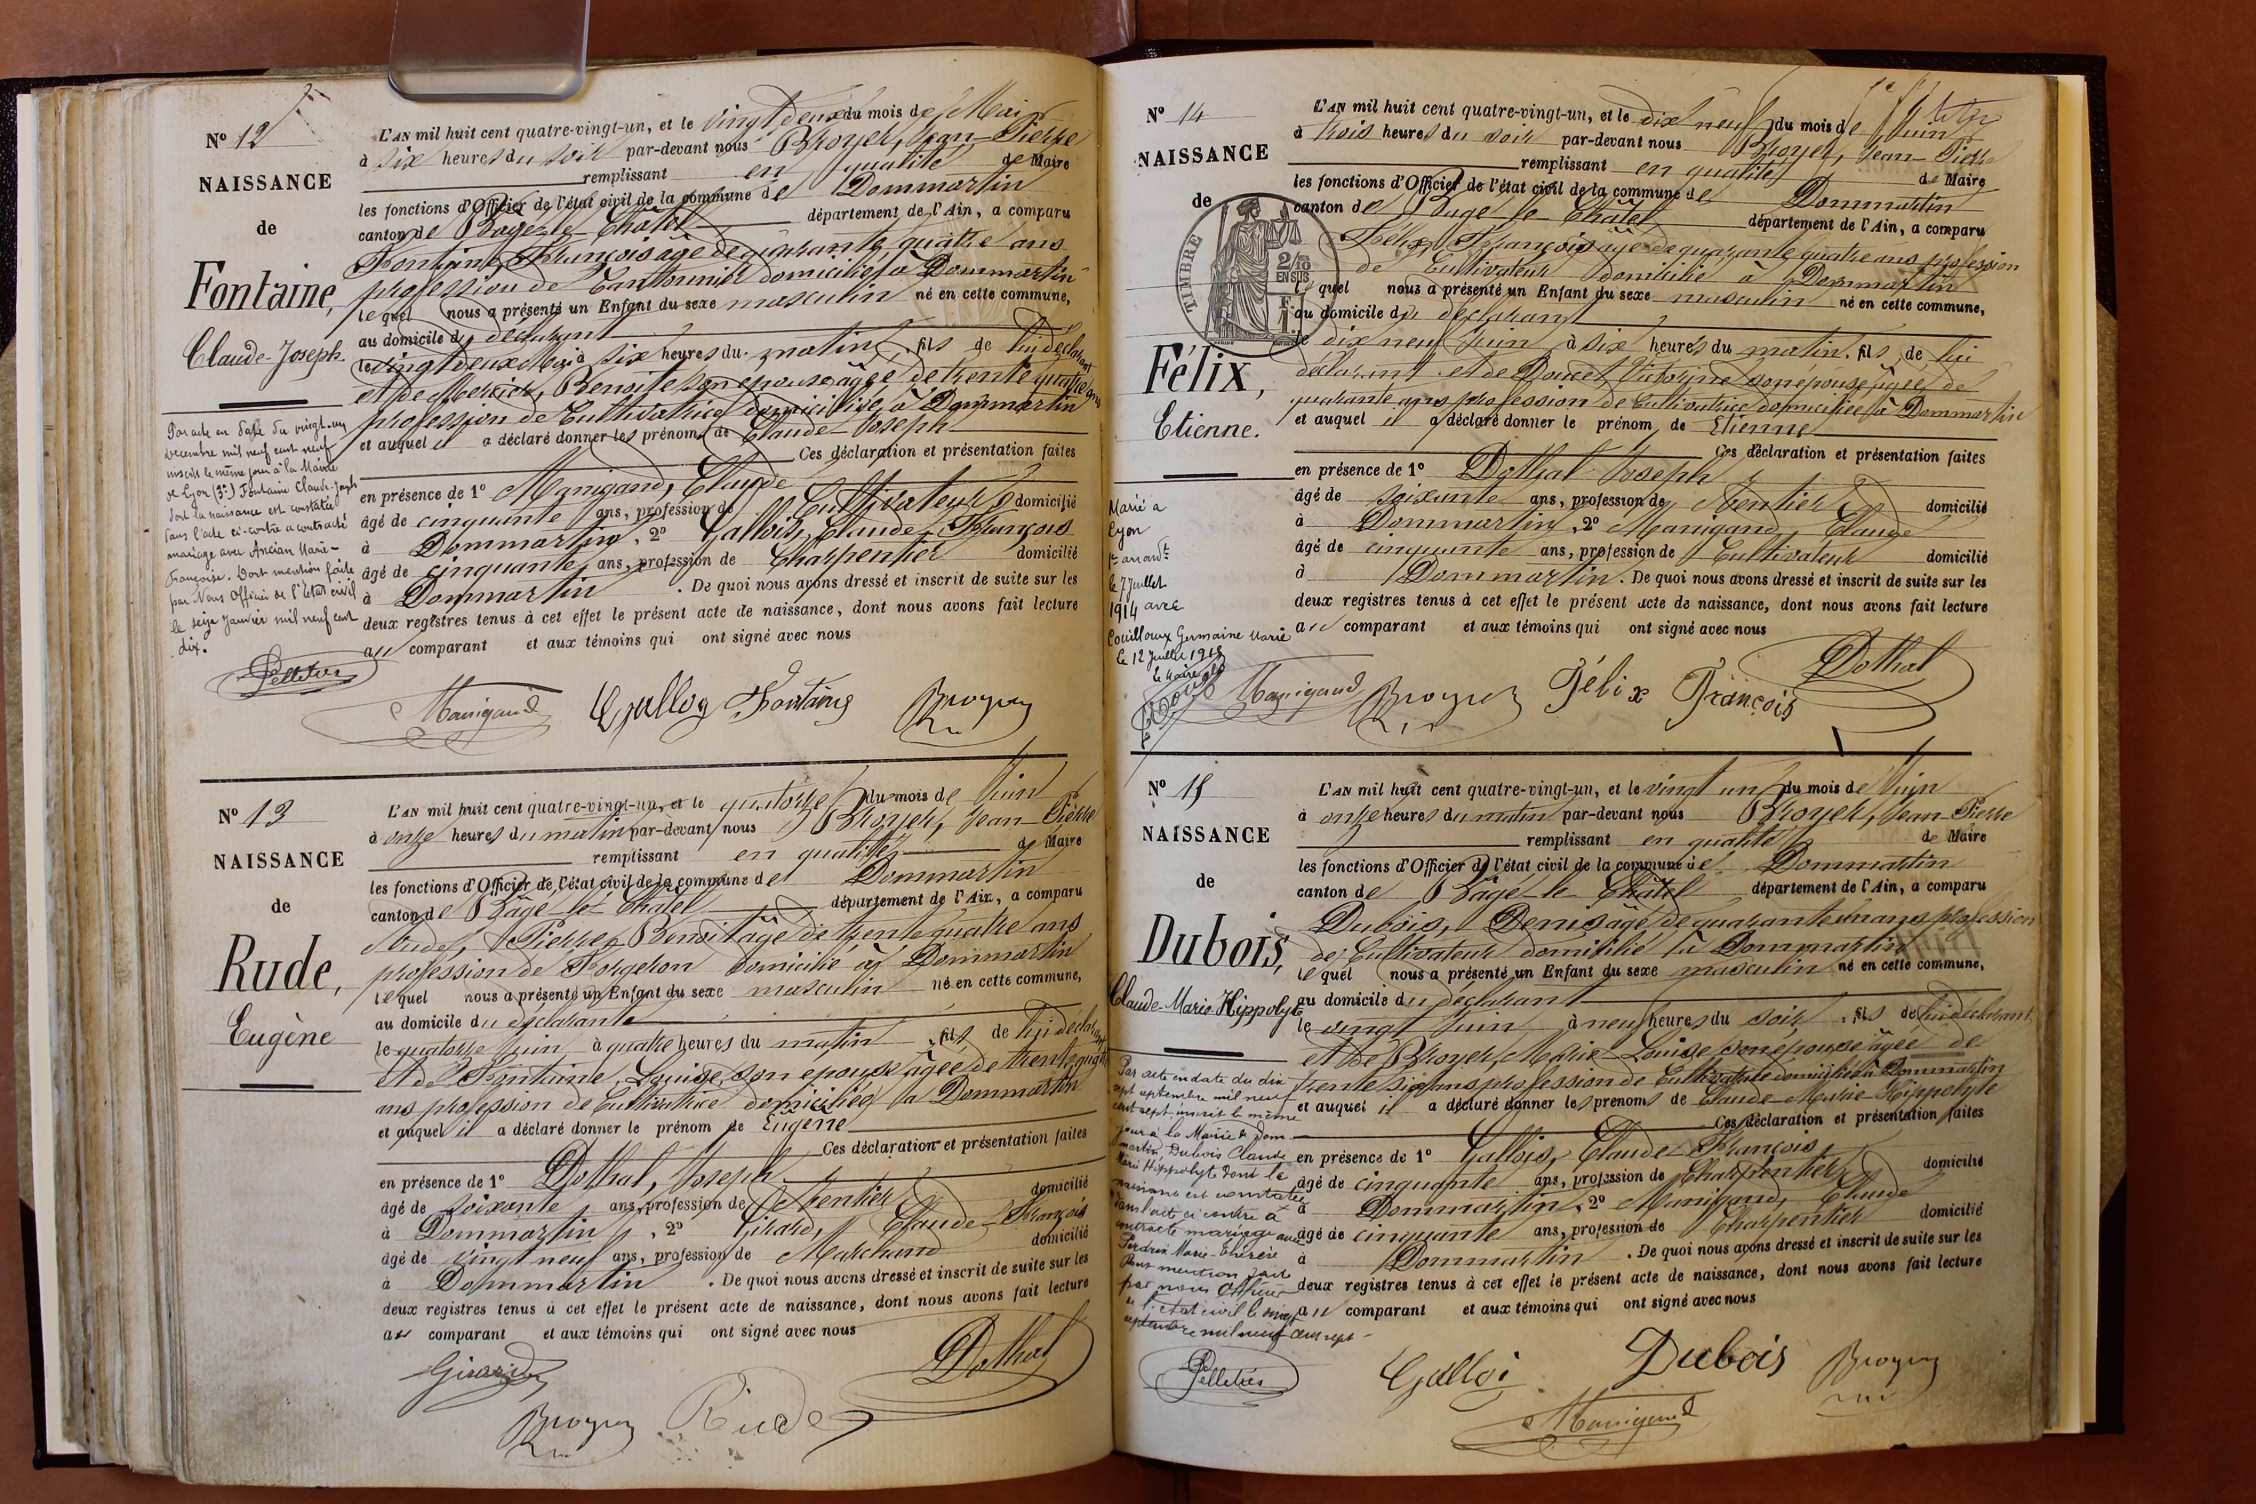 Nº 12
NAISSANCE
de
Fontaine,
Claude-Joseph.
Par acte en date du vingt-un
décembre mil neuf cent neuf
inscrit le même jour à la Mairie
de Lyon (3e) Fontaine Claude-Joseph
dont la naissance est constatée
dans l'acte ci-contre a contracté
mariage avec Ancian Marie-
Françoise. Dont mention faite
par Nous Officier de l'Etat civil
le seize Janvier mil neuf cent
dix.
Pelletier
L'AN mil huit cent quatre-vingt-un, et le vingt deux du mois de Mai
à six heures du soir par-devant nous Broyer, Jean-Pierre
remplissant en qualité de Maire
les fonctions d'Officier de l'état civil de la commune de Dommartin
canton de Bâgé-le-Châtel département de l'Ain, a comparu
Fontaine, François âgé de quarante quatre ans
profession de Cantonnier domicilié à Dommartin
lequel nous a présenté un Enfant du sexe masculin né en cette commune,
au domicile du déclarant
le vingt deux Mai à six heures du matin, fils de lui déclarant
et de Mercier, Benoite son épouse âgée de trente quatre ans
profession de Cultivatrice domiciliée à Dommartin
et auquel il a déclaré donner les prénoms de Claude-Joseph
Ces déclaration et présentation faites
en présence de 1º Manigand, Claude
âgé de cinquante ans, profession de Cultivateur domicilié
à Dommartin, 2º Gallois, Claude-François
âgé de cinquante ans, profession de Charpentier domicilié
à Dommartin. De quoi nous avons dressé et inscrit de suite sur les
deux registres tenus à cet effet le présent acte de naissance, dont nous avons fait lecture
au comparant et aux témoins qui ont signé avec nous
Manigand Gallois Fontaine Broyer
Nº 13
NAISSANCE
de
Rude,
Eugène
L'AN mil huit cent quatre-vingt-un, et le quatorze du mois de Juin
à onze heures du matin par-devant nous Broyer, Jean-Pierre
remplissant en qualité de Maire
les fonctions d'Officier de l'état civil de la commune de Dommartin
canton de Bâgé-le-Châtel département de l'Ain, a comparu
Rude, Pierre-Benoit âgé de trente quatre ans
profession de Forgeron domicilié à Dommartin
lequel nous a présenté un Enfant du sexe masculin né en cette commune,
au domicile du déclarant
le quatorze Juin à quatre heures du matin, fils de lui déclarant
et de Fontaine, Louise, son épouse âgée de trente quatre
ans profession de Cultivatrice domiciliée à Dommartin
et auquel il a déclaré donner le prénom de Eugène
Ces déclaration et présentation faites
en présence de 1º Dothal, Joseph
âgé de soixante ans, profession de Rentier domicilié
à Dommartin, 2º Girard, Claude-François
âgé de vingt neuf ans, profession de Marchand domicilié
à Dommartin. De quoi nous avons dressé et inscrit de suite sur les
deux registres tenus à cet effet le présent acte de naissance, dont nous avons fait lecture
au comparant et aux témoins qui ont signé avec nous
Girard Dothal
Broyer Rude
Nº 14
NAISSANCE
de
TIMBRE
2/10
EN SUS
Félix,
Etienne.
Marié à
Lyon
1er arrondt
le 7 Juillet
1914 avec
Couilloux Germaine Marie
le 12 Juillet 1914
le Maire
L'AN mil huit cent quatre-vingt-un, et le dix neuf du mois de Juin
à trois heures du soir par-devant nous Broyer, Jean-Pierre
remplissant en qualité de Maire
les fonctions d'Officier de l'état civil de la commune de Dommartin
canton de Bâgé-le-Châtel département de l'Ain, a comparu
Félix, François âgé de quarante quatre ans profession
de Cultivateur domicilié à Dommartin
lequel nous a présenté un Enfant du sexe masculin né en cette commune,
au domicile du déclarant
le dix neuf Juin à six heures du matin, fils de lui
déclarant et de Doucet, Victorine son épouse, âgée de
quarante ans profession de Cultivatrice domiciliée à Dommartin
et auquel il a déclaré donner le prénom de Etienne
Ces déclaration et présentation faites
en présence de 1º Dothal Joseph
âgé de soixante ans, profession de Rentier domicilié
à Dommartin, 2º Manigand, Claude
âgé de cinquante ans, profession de Cultivateur domicilié
à Dommartin. De quoi nous avons dressé et inscrit de suite sur les
deux registres tenus à cet effet le présent acte de naissance, dont nous avons fait lecture
au comparant et aux témoins qui ont signé avec nous
Manigand Broyer Félix François Dothal
Nº 15
NAISSANCE
de
Dubois,
Claude-Marie-Hippolyte
Par acte en date du dix
sept septembre mil neuf
cent sept, inscrit le même
jour à la Mairie de Dom-
martin, Dubois Claude
Marie Hippolyte dont la
naissance est constatée
dans l'acte ci contre a
contracté mariage avec
Perdrix Marie-Thérèse
Dont mention faite
par nous Officier
de l'état civil le
septembre mil neuf cent sept
Pelletier
L'AN mil huit cent quatre-vingt-un, et le vingt un du mois de Juin
à onze heures du matin par-devant nous Broyer, Jean-Pierre
remplissant en qualité de Maire
les fonctions d'Officier de l'état civil de la commune de Dommartin
canton de Bâgé-le-Châtel département de l'Ain, a comparu
Dubois, Denis âgé de quarante un ans profession
de Cultivateur domicilié à Dommartin
lequel nous a présenté un Enfant du sexe masculin né en cette commune,
au domicile du déclarant
le vingt Juin à neuf heures du soir, fils de lui déclarant
et de Broyer, Marie-Louise son épouse âgée de
trente six ans profession de Cultivatrice domiciliée à Dommartin
et auquel il a déclaré donner les prénoms de Claude-Marie-Hippolyte
Ces déclaration et présentation faites
en présence de 1º Gallois, Claude-François
âgé de cinquante ans, profession de Charpentier domicilié
à Dommartin, 2º Manigand, Claude
âgé de cinquante ans, profession de Charpentier domicilié
à Dommartin. De quoi nous avons dressé et inscrit de suite sur les
deux registres tenus à cet effet le présent acte de naissance, dont nous avons fait lecture
au comparant et aux témoins qui ont signé avec nous
Gallois Dubois Broyer
Manigand